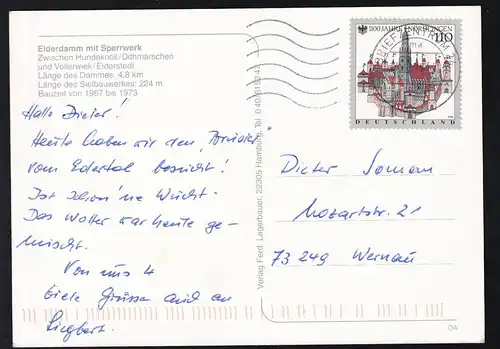 Eiderdamm mit Sperrwerk
Zwischen Hundeknöll/Dithmarschen
und Vollerwiek/Eiderstedt
Länge des Dammes: 4,8 km
Länge des Sielbauwerkes: 224 m
Bauzeit von 1967 bis 1973
Hallo Dieter!
Heute haben wir den
vom Edertal besucht!
Ist schon 'ne Wucht.
Das Wetter war heute ge-
mischt.
Von uns 4
viele Grüsse auch an
Siegbert.
Verlag Ferd. Lagerbauer, 22305 Hamburg, Tel. 0 40/
1100 JAHRE NÖRDLINGEN
110
DEUTSCHLAND
BRIEFZENTRUM
Dieter
Mozartstr. 21
73249 Wernau
04